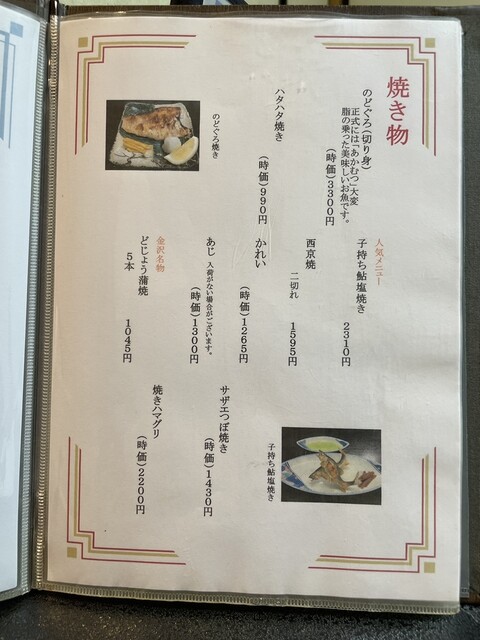 焼き物
のどぐろ(切り身)
正式には「あかむつ」大変
脂の乗った美味しいお魚です。
(時価)3300円
ハタハタ焼き
(時価)990円
のどぐろ焼き
人気メニュー
子持ち鮎塩焼き
2310円
西京焼
二切れ
1595円
かれい
(時価)1265円
あじ 入荷がない場合がございます。
(時価)1300円
金沢名物
どじょう蒲焼
5本
1045円
サザエつぼ焼き
(時価)1430円
焼きハマグリ
(時価)2200円
子持ち鮎塩焼き